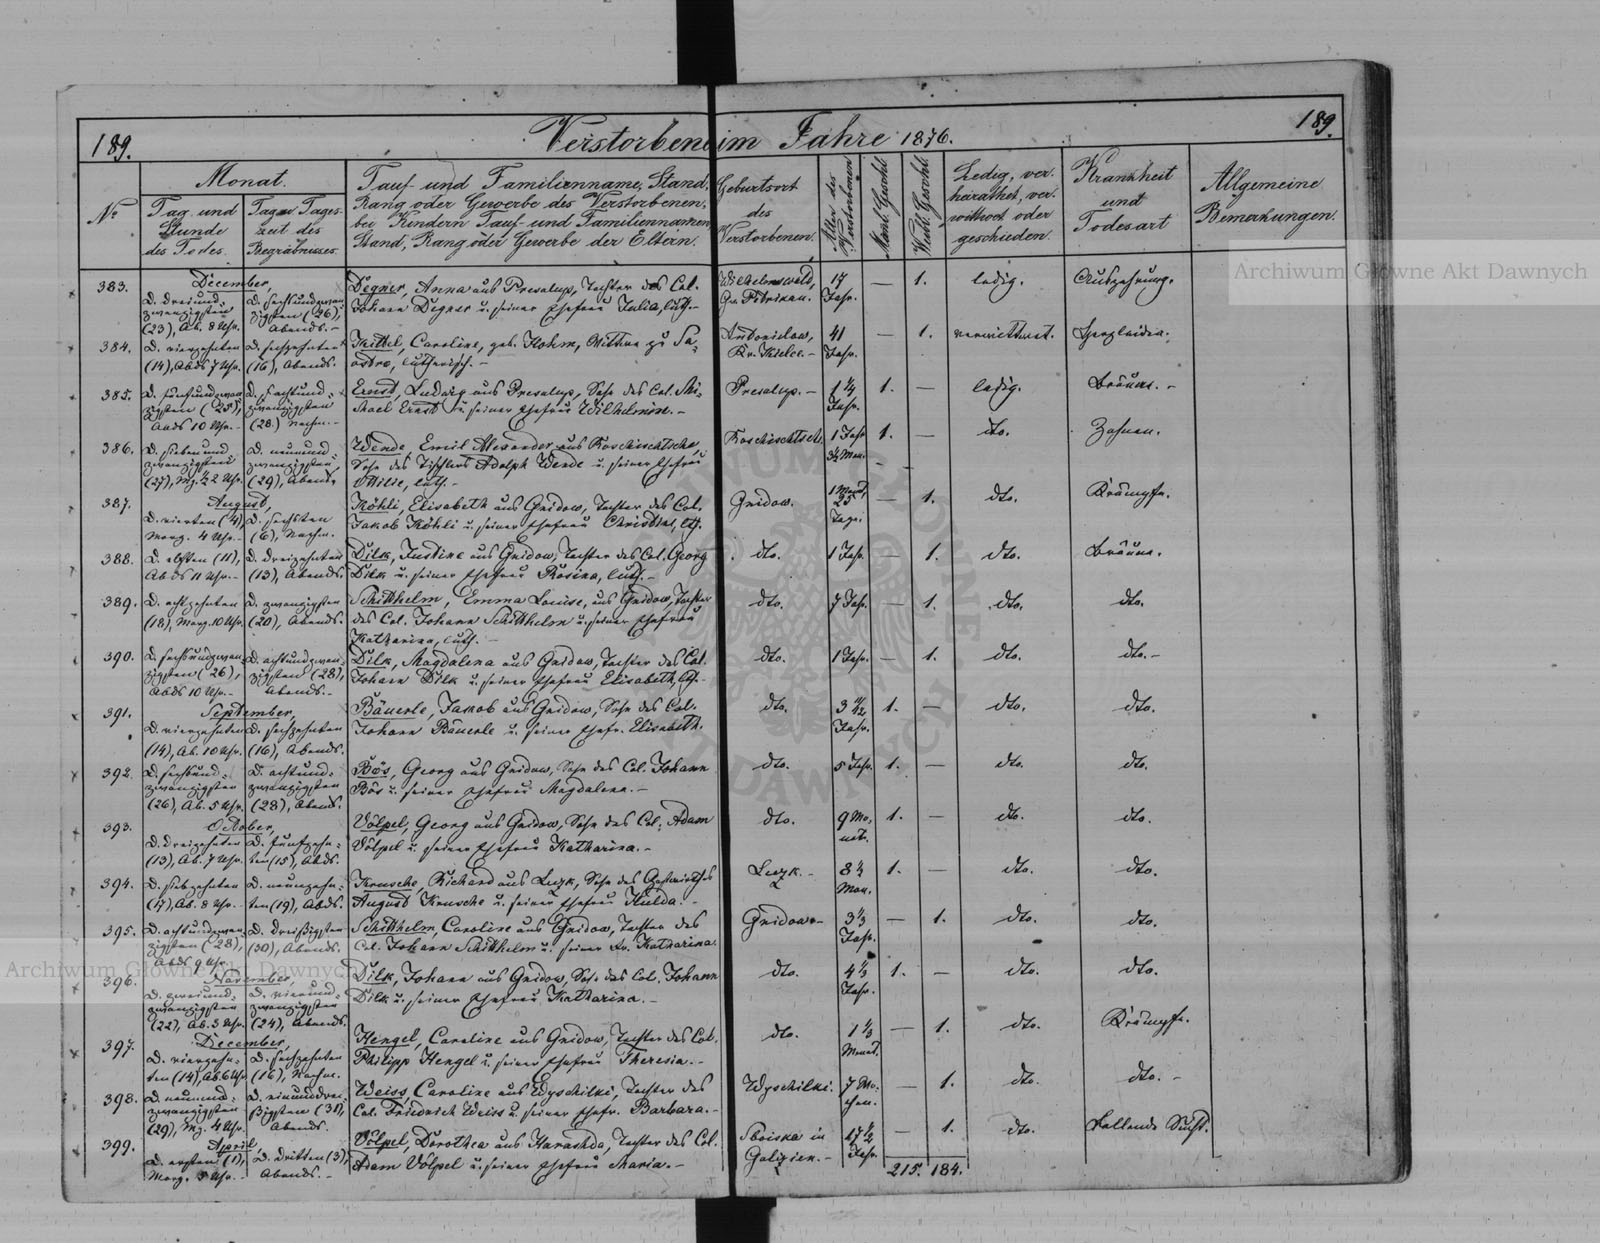 189.
Verstorbene im Jahre 1876.
189.
No
Monat.
Tag und Stunde des Todes.
Tag u. Tageszeit des Begräbnisses.
Tauf- und Familienname, Stand,
Rang oder Gewerbe des Verstorbenen,
bei Kindern Tauf- und Familiennamen
Stand, Rang oder Gewerbe der Eltern.
Geburtsort
des
Verstorbenen.
Alter des Verstorbenen
Mänl. Geschl.
Weibl. Geschl.
Ledig, ver-
heirathet, ver-
wittwet oder
geschieden.
Krankheit
und
Todesart
Allgemeine
Bemerkungen.
383.
December,
D. dreiund-
zwanzigsten
(23), Ab. 8 Uhr.
D. sechsundzwan-
zigsten (26),
Abends.-
Degner, Anna aus Presalup, Tochter des Col.
Johann Degner u. seiner Ehefrau Julia, luth.-
17
Jahr.
1.
ledig.
Auszehrung.
384.
D. vierzehnten
(14), Abds 7 Uhr.
D. sechzehnten
(16), Abends.
Kittel, Caroline, geb. Hohm, Wittwe zu
lutherisch.-
41
Jahr.
1.
verwittwet.
385.
D. fünfundzwan-
zigsten (25),
Abds 10 Uhr.-
D. achtund-
zwanzigsten
(28.) Nachm.-
Ernst, Ludwig aus Presalup, Sohn des Col. Mi-
chael Ernst u. seiner Ehefrau Wilhelmine.-
Presalup.-
1 1/4
Jahr.
1.
ledig.
Bräune.-
386.
D. siebenund-
zwanzigsten
(27), Mg. 1/2 2 Uhr.
D. neunund-
zwanzigsten
(29), Abends.
Wende, Emil Alexander aus Roschischtsche,
Sohn des Tischlers Adolph Wende u. seiner Ehefrau
Ottilie, luth.-
Roschischtsch.
1 Jahr
3 1/2 Mon.
1.
dto.
Zahnen.
387.
August,
D. vierten (4),
Morg. 4 Uhr.-
D. sechsten
(6), Nachm.
Köhli, Elisabeth aus Gnidow, Tochter des Col.
Jakob Köhli u. seiner Ehefrau Christine, lth.
Gnidow.
1 Monat,
25
Tage.
1.
dto.
Krämpfe.
388.
D. elften (11),
Abds 11 Uhr.-
D. dreizehnten
(13), Abends.
Dilk, Justine aus Gnidow, Tochter des Col. Georg
Dilk u. seiner Ehefrau Rosina, luth.-
dto.
1 Jahr.
1.
dto.
Bräune.
389.
D. achtzehnten
(18), Morg. 10 Uhr.
D. zwanzigsten
(20), Abends.
Schitthelm, Emma Louise, aus Gnidow, Tochter
des Col. Johann Schitthelm u. seiner Ehefrau
Katharina, luth.-
dto.
7 Jahr.
1.
dto.
dto.
390.
D. sechsundzwan-
zigsten (26),
Abds 10 Uhr.-
D. achtundzwan-
zigsten (28),
Abends.-
Dilk, Magdalena aus Gnidow, Tochter des Col.
Johann Dilk u. seiner Ehefrau Elisabeth, lth.-
dto.
1 Jahr.
1.
dto.
dto.-
391.
September,
D. vierzehnten
(14), Ab. 10 Uhr.
D. sechzehnten
(16), Abends.
Bäuerle, Jakob aus Gnidow, Sohn des Col.
Johann Bäuerle u. seiner Ehefr. Elisabeth.
dto.
Jahr.
1.
dto.
dto.
392.
D. sechsund-
zwanzigsten
(26), Ab. 5 Uhr.
D. achtund-
zwanzigsten
(28), Abends.
Bös, Georg aus Gnidow, Sohn des Col. Johann
Bös u. seiner Ehefrau Magdalena.-
dto.
5 Jahr.
1.
dto.
dto.
393.
October,
D. dreizehnten
(13), Ab. 7 Uhr.
D. fünfzehn-
ten (15), Abds.
Völpel, Georg aus Gnidow, Sohn des Col. Adam
Völpel u. seiner Ehefrau Katharina.-
dto.
9 Mo-
nate.
1.
dto.
dto.
394.
D. siebzehnten
(17), Ab. 8 Uhr.-
D. neunzehn-
ten (19), Abds.
Krusche, Richard aus Luzk, Sohn des Gastwirthes
August Krusche u. seiner Ehefrau Hulda.-
Luzk.-
Mon.
1.
dto.
dto.
395.
D. achtundzwan-
zigsten (28),
Abds 9 Uhr.
D. dreißigsten
(30), Abends.
Schitthelm, Caroline aus Gnidow, Tochter des
Col. Johann Schitthelm u. seiner Fr. Katharina.
Gnidow.-
3 1/3
Jahr.
1.
dto.
dto.
396.
November,
D. zweiund-
zwanzigsten
(22), Ab. 5 Uhr.
D. vierund-
zwanzigsten
(24), Abends.
Dilk, Johann aus Gnidow, Sohn des Col. Johann
Dilk u. seiner Ehefrau Katharina.-
dto.
4 1/3
Jahr.
1.
dto.
dto.
397.
December,
D. vierzehn-
ten (14), Ab. 6 Uhr
D. sechzehnten
(16), Nachm.
Hengel, Caroline aus Gnidow, Tochter des Col.
Philipp Hengel u. seiner Ehefrau Theresia.-
dto.
1 1/3
Monat.
1.
dto.
Krämpfe.
398.
D. neunund-
zwanzigsten
(29), Mg. 4 Uhr.
D. einunddrei-
ßigsten (31),
Abends.
Weiss, Caroline aus Wyschilki, Tochter des
Col. Friedrich Weiss u. seiner Ehefr. Barbara.-
Wyschilki.
7 Wo-
chen.
1.
dto.
dto.-
399.
April
D. ersten (1),
Morg. 5 Uhr.-
D. dritten (3),
Abends.-
Völpel, Dorothea aus Harashda, Tochter des Col.
Adam Völpel u. seiner Ehefrau Maria.-
Sboiska in
Galizien.-
17 1/2
Jahr.
1.
dto.
Fallende Sucht.
215. 184.
Archiwum Główne Akt Dawnych
Archiwum Główne Akt Dawnych